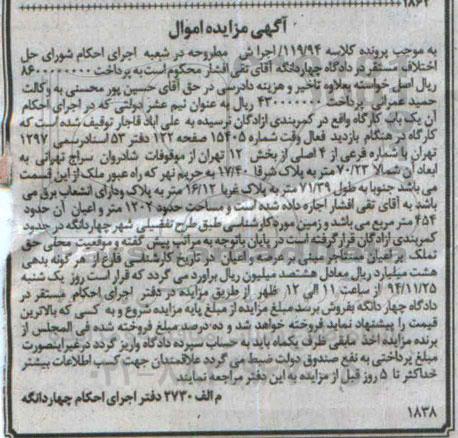 ۱۸۶۲
آگهی مزایده اموال
به موجب پرونده کلاسه ۱۱۹/۹۴/ اجرا ش مطروحه در شعبه اجرای احکام شورای حل
اختلاف مستقر در دادگاه چهاردانگه آقای تقی افشار محکوم است به پرداخت ۸۶۰۰۰۰۰۰۰
ریال اصل خواسته بعلاوه تاخیر و هزینه دادرسی در حق آقای حسین پور محسنی به وکالت
حمید عمرانی پرداخت ۴۳۰۰۰۰۰۰ ریال به عنوان نیم عشر دولتی که در اجرای احکام
آن یک باب کارگاه واقع در کمربندی آزادگان نرسیده به علی آباد قاجار توقیف شده است که
کارگاه در هنگام بازدید فعال وقت شماره ۱۵۴۰۵ صفحه ۱۲۲ دفتر ۵۳ اسنادرسمی ۱۲۹۷
تهران با شماره فرعی از ۴ اصلی از بخش ۱۲ تهران از موقوفات شادروان سراج تهرانی به
ابعاد آن شمالا ۷۰/۲۳ متر به پلاک شرقا ۱۷/۴۰ به حریم نهر که راه عبور ملک از این قسمت
می باشد جنوبا به طول ۷۱/۳۹ متر به پلاک غربا ۱۶/۱۲ متر به پلاک ودارای انشعاب برق می
باشد به آقای تقی افشار اجاره داده شده است و مساحت حدود ۱۲۰۲ متر و اعیان آن حدود
۴۵۴ متر مربع می باشد و زمین مورد کارشناسی طبق طرح تفضیلی شهر چهاردانگه در حدود
کمربندی آزادگان قرار گرفته است در پایان باتوجه به مراتب پیش گفته و موقعیت محلی حق
تملک بر اعیان مستاجر مبنی بر عرصه و اعیان در تاریخ کارشناسی فارغ از هر گونه بدهی
هشت میلیارد ریال معادل هشتصد میلیون ریال براورد می گردد که قرار است روز یک شنبه
۹۴/۱۱/۲۵ از ساعت ۱۱ الی ۱۲ ظهر از طریق مزایده در دفتر اجرای احکام مستقر در
دادگاه چهار دانگه بفروش برسد مبلغ مزایده از مبلغ پایه مزایده شروع و به کسی که بالاترین
قیمت را پیشنهاد نماید فروخته خواهد شد و ده درصد مبلغ فروخته شده فی المجلس از
برنده مزایده اخذ مابقی ظرف یکماه باید به حساب سپرده دادگاه واریز گردد در غیراینصورت
مبلغ پرداختی به نفع صندوق دولت ضبط می گردد علاقمندان جهت کسب اطلاعات بیشتر
حداکثر تا ۵ روز قبل از مزایده به این دفتر مراجعه نمایند
م الف ۲۷۳۰ دفتر اجرای احکام چهاردانگه
۱۸۳۸